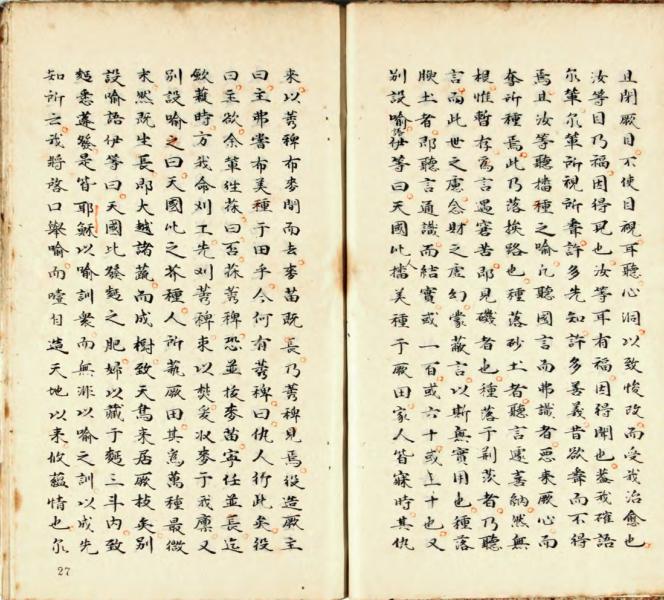 且閉厥目不使目視耳聽心洞以致悛改而受我治愈也
汝等目乃福因得見也汝等耳有福因得聞也蓋我確語
尔輩尔輩所視所聽許多先知許多善義昔欲聽而不得
焉且汝等聽播種之喻凡聽國言而弗識者惡來厥心而
奪所種焉此乃落挨路也種落砂土者聽言遽喜納然無
根惟暫存為言遇窘苦即見磯者也種落于荊茨者乃聽
言而此世之慮念財之虛幻蒙蔽言以斷無實用也種落
腴土者即聽言通識而結實或一百或六十或三十也又
別設喻語伊等曰天國比人播美種于厥田家人皆寐時其仇
來以莠稗布麥間而去麥苗既長乃莠稗見焉役造厥主
曰主弗嘗布美種于田乎今何有莠稗曰仇人行此矣役
曰主欲余輩往蓀曰否蓀莠稗恐並拔麥苗寧任並長迄
歛穫時方我命刈工先刈莠稗束以焚妥收麥于我廪又
別設喻之曰天國比之芥種人所蓺厥田其為萬種最微
末然既生長即大越諸蔬而成樹致天鳥來居厥枝矣別
設喻語伊等曰天國比發麵之肥婦以藏于麵三斗內致
麵悉蓬發是皆耶穌以喻訓衆而無非以喻之訓以成先
知所云我將啓口舉喻而噎自造天地以來攸蘊情也尔
27